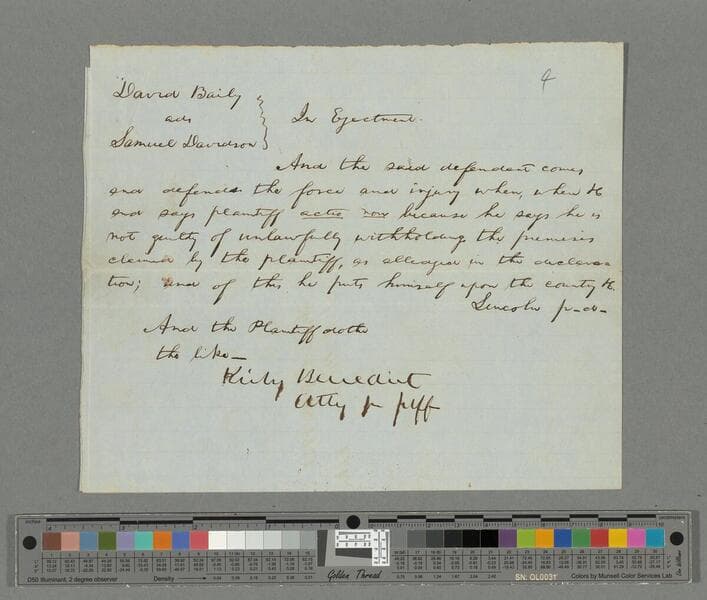 4
David Baily
ads
Samuel Davidson
In Ejectment.
And the said defendant comes
and defends the force and injury when, when &c
and says plantiff actio non because he says he is
not guilty of unlawfully withholding the premises
claimed by the plantiff, as alleaged in the declara
tion; and of this he puts himself upon the county &c.
Lincoln p-d-
And the Plantiff doth
the like—
Kirby Benedict
Atty for plff
inches
centimeters
D50 Illuminant, 2 degree observer
Density
Golden Thread
SN: OL0031
Colors by Munsell Color Services Lab